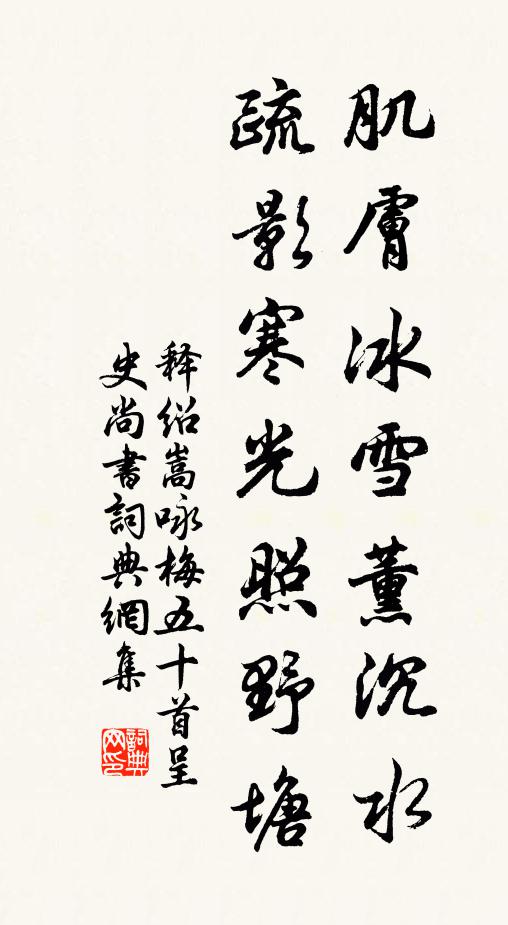 肌膚冰雪薰沉水
疏影寒光照野塘
释绍嵩咏梅五十首呈
史尚書詞典網集
詞典
网印